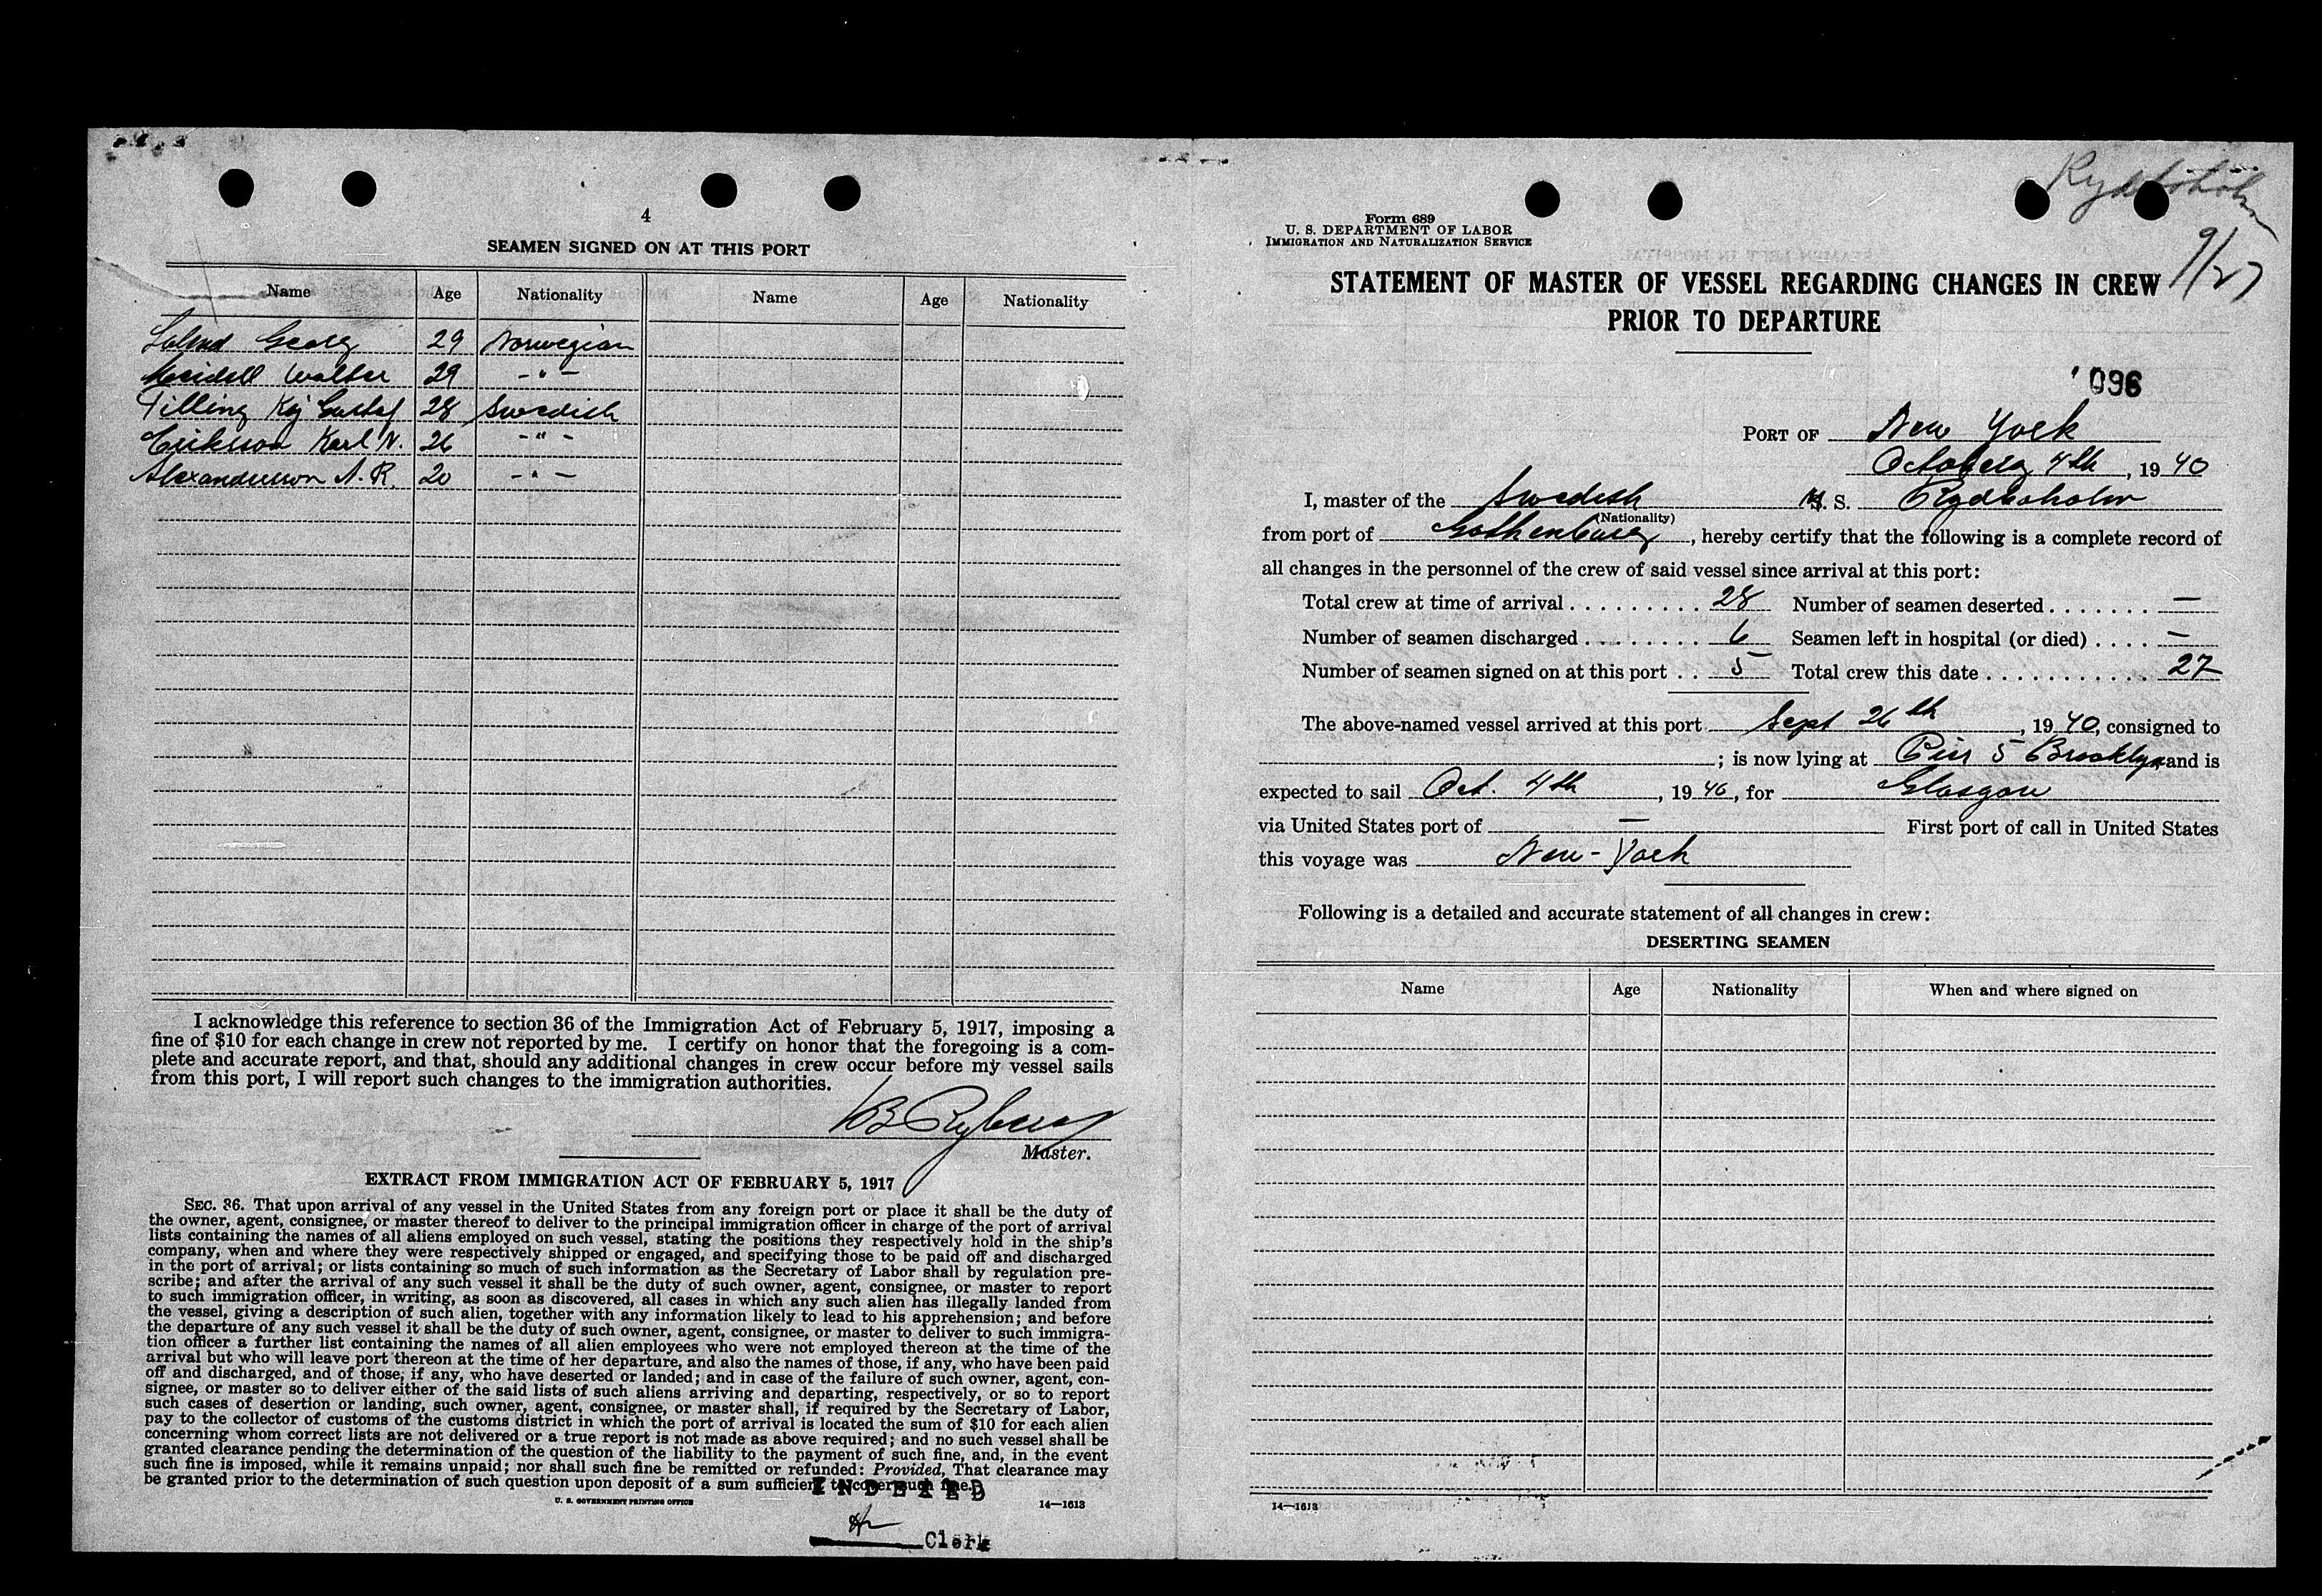 4
SEAMEN SIGNED ON AT THIS PORT
Name Age Nationality Name Age Nationality
Georg 29 Norwegian
Walter 29 -"-
Tilling Kaj Gustaf 28 Swedish
Eriksson Karl N. 26 -"-
Alexandersson A. R. 20 -"-
I acknowledge this reference to section 36 of the Immigration Act of February 5, 1917, imposing a
fine of $10 for each change in crew not reported by me. I certify on honor that the foregoing is a com-
plete and accurate report, and that, should any additional changes in crew occur before my vessel sails
from this port, I will report such changes to the immigration authorities.
Master.
EXTRACT FROM IMMIGRATION ACT OF FEBRUARY 5, 1917
SEC. 36. That upon arrival of any vessel in the United States from any foreign port or place it shall be the duty of
the owner, agent, consignee, or master thereof to deliver to the principal immigration officer in charge of the port of arrival
lists containing the names of all aliens employed on such vessel, stating the positions they respectively hold in the ship's
company, when and where they were respectively shipped or engaged, and specifying those to be paid off and discharged
in the port of arrival; or lists containing so much of such information as the Secretary of Labor shall by regulation pre-
scribe; and after the arrival of any such vessel it shall be the duty of such owner, agent, consignee, or master to report
to such immigration officer, in writing, as soon as discovered, all cases in which any such alien has illegally landed from
the vessel, giving a description of such alien, together with any information likely to lead to his apprehension; and before
the departure of any such vessel it shall be the duty of such owner, agent, consignee, or master to deliver to such immigra-
tion officer a further list containing the names of all alien employees who were not employed thereon at the time of the
arrival but who will leave port thereon at the time of her departure, and also the names of those, if any, who have been paid
off and discharged, and of those, if any, who have deserted or landed; and in case of the failure of such owner, agent, con-
signee, or master so to deliver either of the said lists of such aliens arriving and departing, respectively, or so to report
such cases of desertion or landing, such owner, agent, consignee, or master shall, if required by the Secretary of Labor,
pay to the collector of customs of the customs district in which the port of arrival is located the sum of $10 for each alien
concerning whom correct lists are not delivered or a true report is not made as above required; and no such vessel shall be
granted clearance pending the determination of the question of the liability to the payment of such fine, and, in the event
such fine is imposed, while it remains unpaid; nor shall such fine be remitted or refunded: Provided, That clearance may
be granted prior to the determination of such question upon deposit of a sum sufficient to cover such fine.
INDEXED
U. S. GOVERNMENT PRINTING OFFICE 14—1613
Clerk
Rydboholm
9/27
Form 689
U. S. DEPARTMENT OF LABOR
IMMIGRATION AND NATURALIZATION SERVICE
STATEMENT OF MASTER OF VESSEL REGARDING CHANGES IN CREW
PRIOR TO DEPARTURE
096
PORT OF New York
October 4th, 1940
I, master of the Swedish M. S. Rydboholm
(Nationality)
from port of Gothenburg, hereby certify that the following is a complete record of
all changes in the personnel of the crew of said vessel since arrival at this port:
Total crew at time of arrival . . . . . . . . . 28 Number of seamen deserted . . . . . . . —
Number of seamen discharged . . . . . . . . 6 Seamen left in hospital (or died) . . . . —
Number of seamen signed on at this port . . 5 Total crew this date . . . . . . . . . . . . 27
The above-named vessel arrived at this port Sept 26th, 1940, consigned to
; is now lying at Pier 5 Brooklyn and is
expected to sail Oct. 4th, 1940, for Glasgow
via United States port of — First port of call in United States
this voyage was New-York
Following is a detailed and accurate statement of all changes in crew:
DESERTING SEAMEN
Name Age Nationality When and where signed on
14—1613